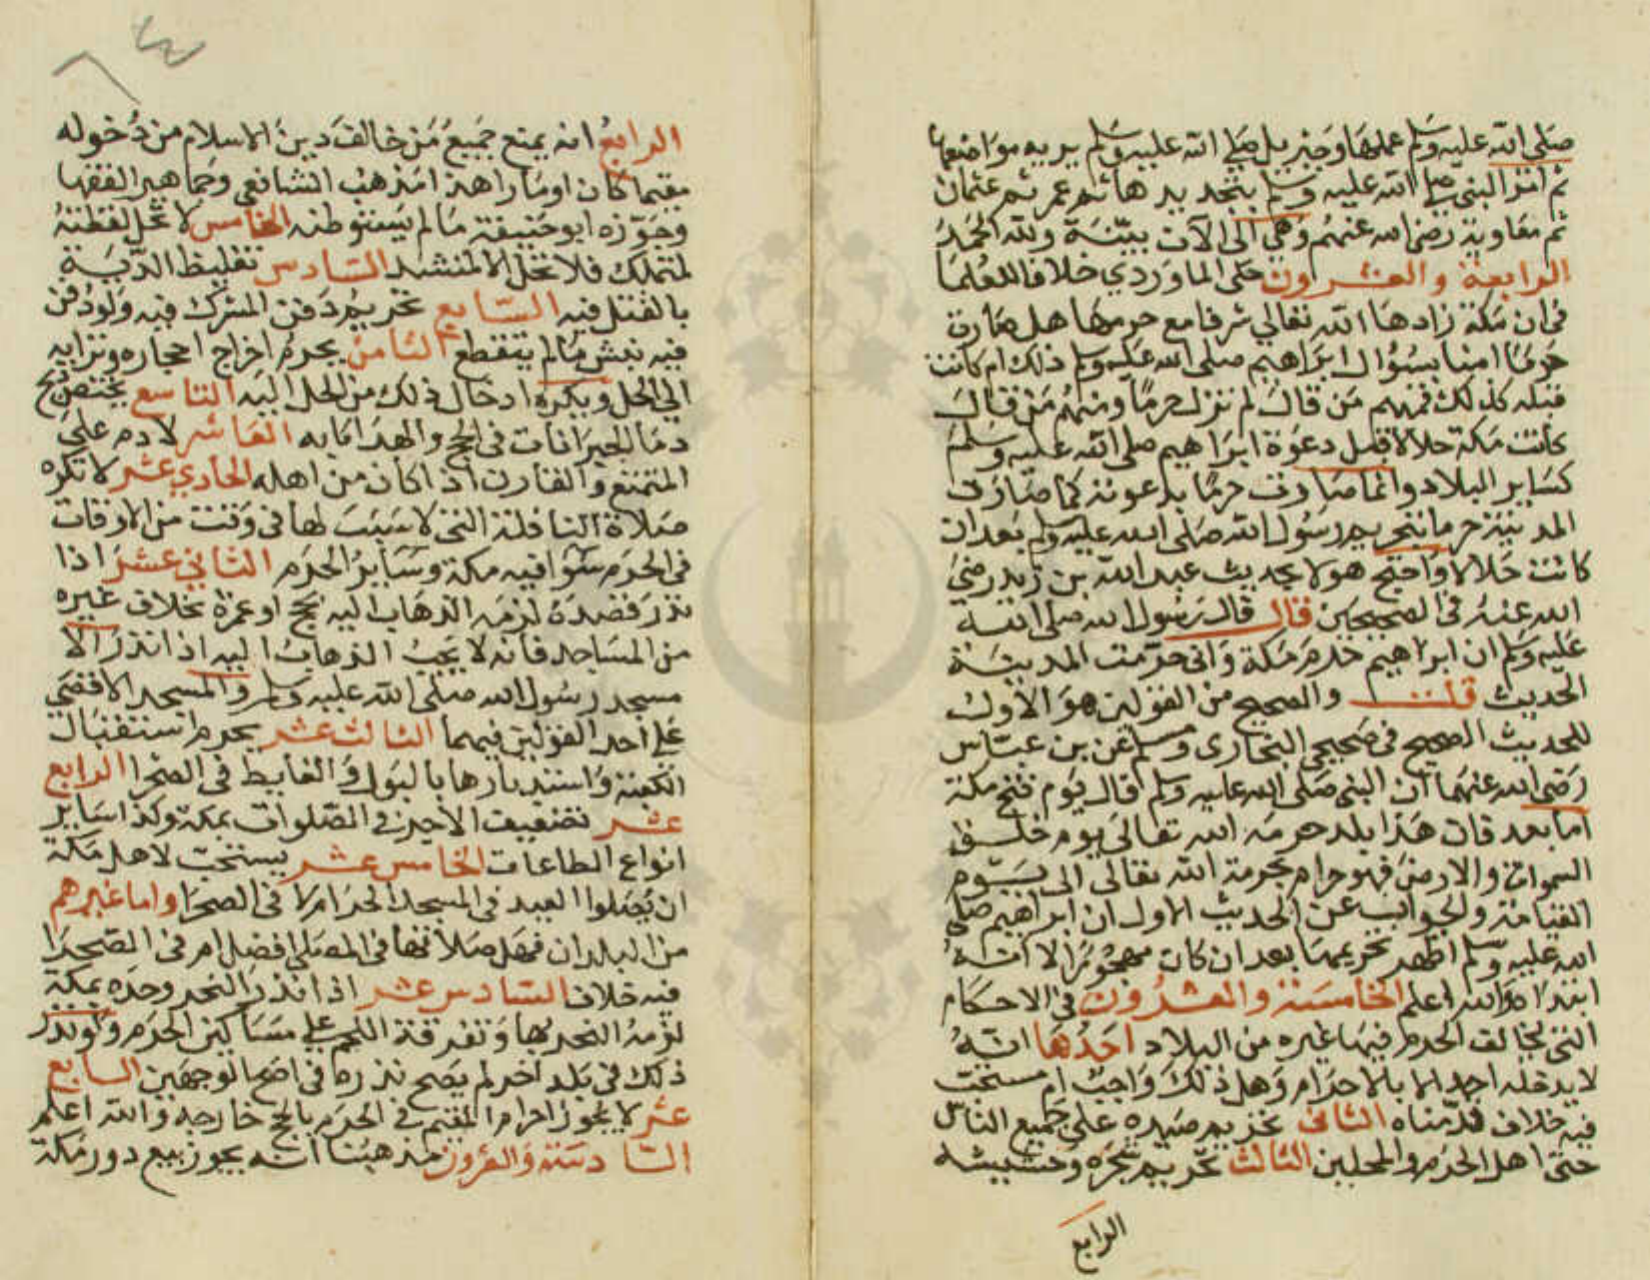 صلى الله عليه وسلم عملها وجبريل صلى الله عليه وسلم يريه مواضعها
ثم امر النبي صلى الله عليه وسلم بتجديدها ثم عمر ثم عثمان
ثم معاوية رضي الله عنهم وهي الى الآن بينة ولله الحمد
الرابعة والعشرون حكى الماوردي خلافا للعلما
في ان مكة زادها الله تعالى شرفا مع حرمها هل صارت
حرما امنا بسؤال ابراهيم صلى الله عليه وسلم ذلك ام كانت
قبله كذلك فمنهم من قال لم تزل حرما ومنهم من قال
كانت مكة حلالا قبل دعوة ابراهيم صلى الله عليه وسلم
كساير البلاد وانما صارت حرما بدعوته كما صارت
المدينة حرما بتحريم رسول الله صلى الله عليه وسلم بعد ان
كانت حلالا واحتج هولا بحديث عبد الله بن زيد رضي
الله عنه في الصحيحين قال قال رسول الله صلى الله
عليه وسلم ان ابراهيم حرم مكة واني حرمت المدينة
الحديث قلت والصحيح من القولين هو الاول
للحديث الصحيح في صحيحي البخاري ومسلم عن بن عباس
رضي الله عنهما ان النبي صلى الله عليه وسلم قال يوم فتح مكة
اما بعد فان هذا بلد حرمه الله تعالى يوم خلق
السموات والارض فهو حرام بحرمة الله تعالى الى يوم
القيامة والجواب عن الحديث الاول ان ابراهيم صلى
الله عليه وسلم اظهر تحريمها بعد ان كان مهجورا لا انه
ابتداه والله اعلم الخامسة والعشرون في الاحكام
التي يخالف الحرم فيها غيره من البلاد احدها انه
لا يدخله احد الا بالاحرام وهل ذلك واجب ام مستحب
فيه خلاف قدمناه الثاني تحريم صيده على جميع الناس
حتى اهل الحرم والمحلين الثالث تحريم شجره وحشيشه
الرابع
الرابع انه يمنع جميع من خالف دين الاسلام من دخوله
مقيما كان او مارا هذا مذهب الشافعي وجماهير الفقها
وجوزه ابو حنيفة مالم يستوطنه الخامس لا تحل لقطته
لمتملك فلا تحل الا لمنشد السادس تغليظ الدية
بالقتل فيه السابع تحريم دفن المشرك فيه ولو دفن
فيه نبش مالم يتقطع الثامن يحرم اخراج احجاره وترابه
الى الحل ويكره ادخال ذلك من الحل اليه التاسع يختص ذبح
دما الجبرانات في الحج والهدايا به العاشر لا دم على
المتمتع والقارن اذا كان من اهله الحادي عشر لا تكره
صلاة النافلة التي لا سبب لها في وقت من الاوقات
في الحرم سوا فيه مكة وساير الحرم الثاني عشر اذا
نذر قصده لزمه الذهاب اليه بحج او عمرة بخلاف غيره
من المساجد فانه لا يجب الذهاب اليه اذا نذر الا
مسجد رسول الله صلى الله عليه وسلم والمسجد الاقصى
على احد القولين فيهما الثالث عشر يحرم استقبال
الكعبة واستدبارها بالبول والغايط في الصحرا الرابع
عشر تضعيف الاجر في الصلوات بمكة وكذا ساير
انواع الطاعات الخامس عشر يستحب لاهل مكة
ان يصلوا العيد في المسجد الحرام لا في الصحرا واما غيرهم
من البلدان فهل صلاتها في المصلى افضل ام في الصحرا
فيه خلاف السادس عشر اذا نذر النحر وحده بمكة
لزمه النحر بها وتفرقة اللحم على مساكين الحرم ولو نذر
ذلك في بلد اخر لم يصح نذره في اصح الوجهين السابع
عشر لا يجوز احرام المقيم في الحرم بالحج خارجه والله اعلم
السادسة والعشرون مذهبنا انه يجوز بيع دور مكة